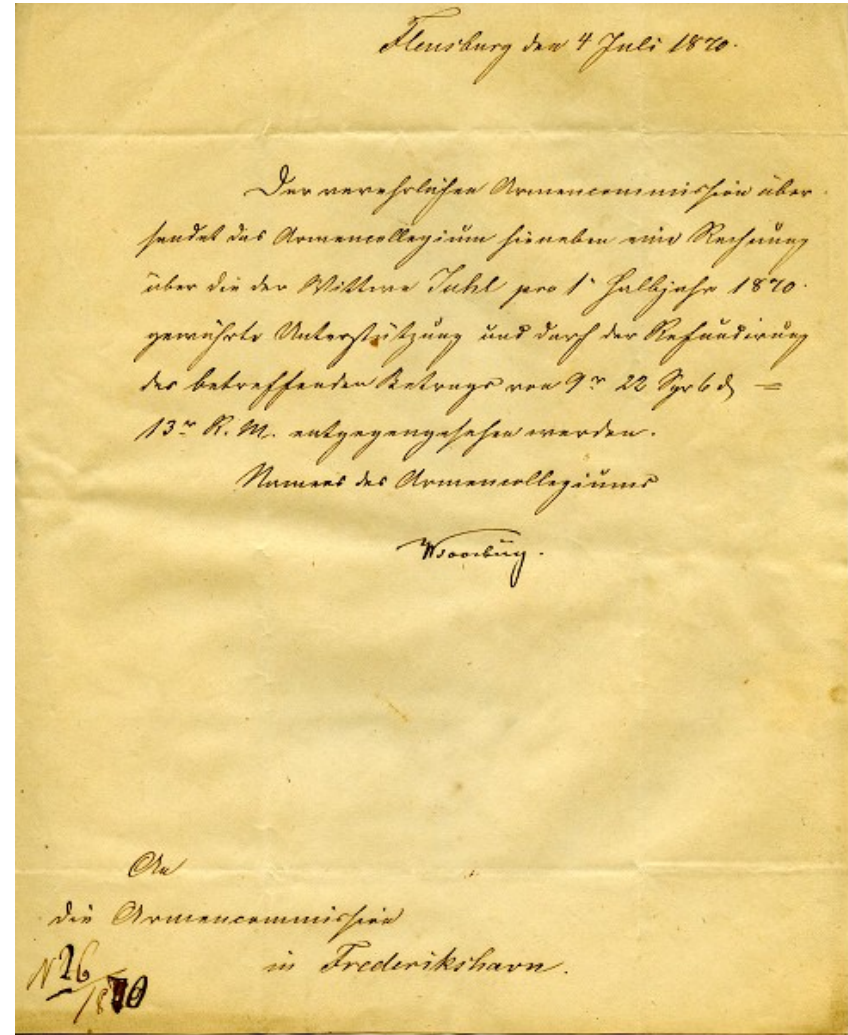 Flensburg den 4 Juli 1870.
Der verehrlichen Armencommission über-
sendet das Armencollegium hieneben eine Rechnung
über die der Wittwe Juhl pro 1' Halbjahr 1870.
gewährte Unterstützung und darf der Refundirung
des betreffenden Betrags von 9 22 Sgr 6 d =
13 R. M. entgegengesehen werden.
Namens des Armencollegiums
An
die Armencommission
in Frederikshavn.
N 26
/1870